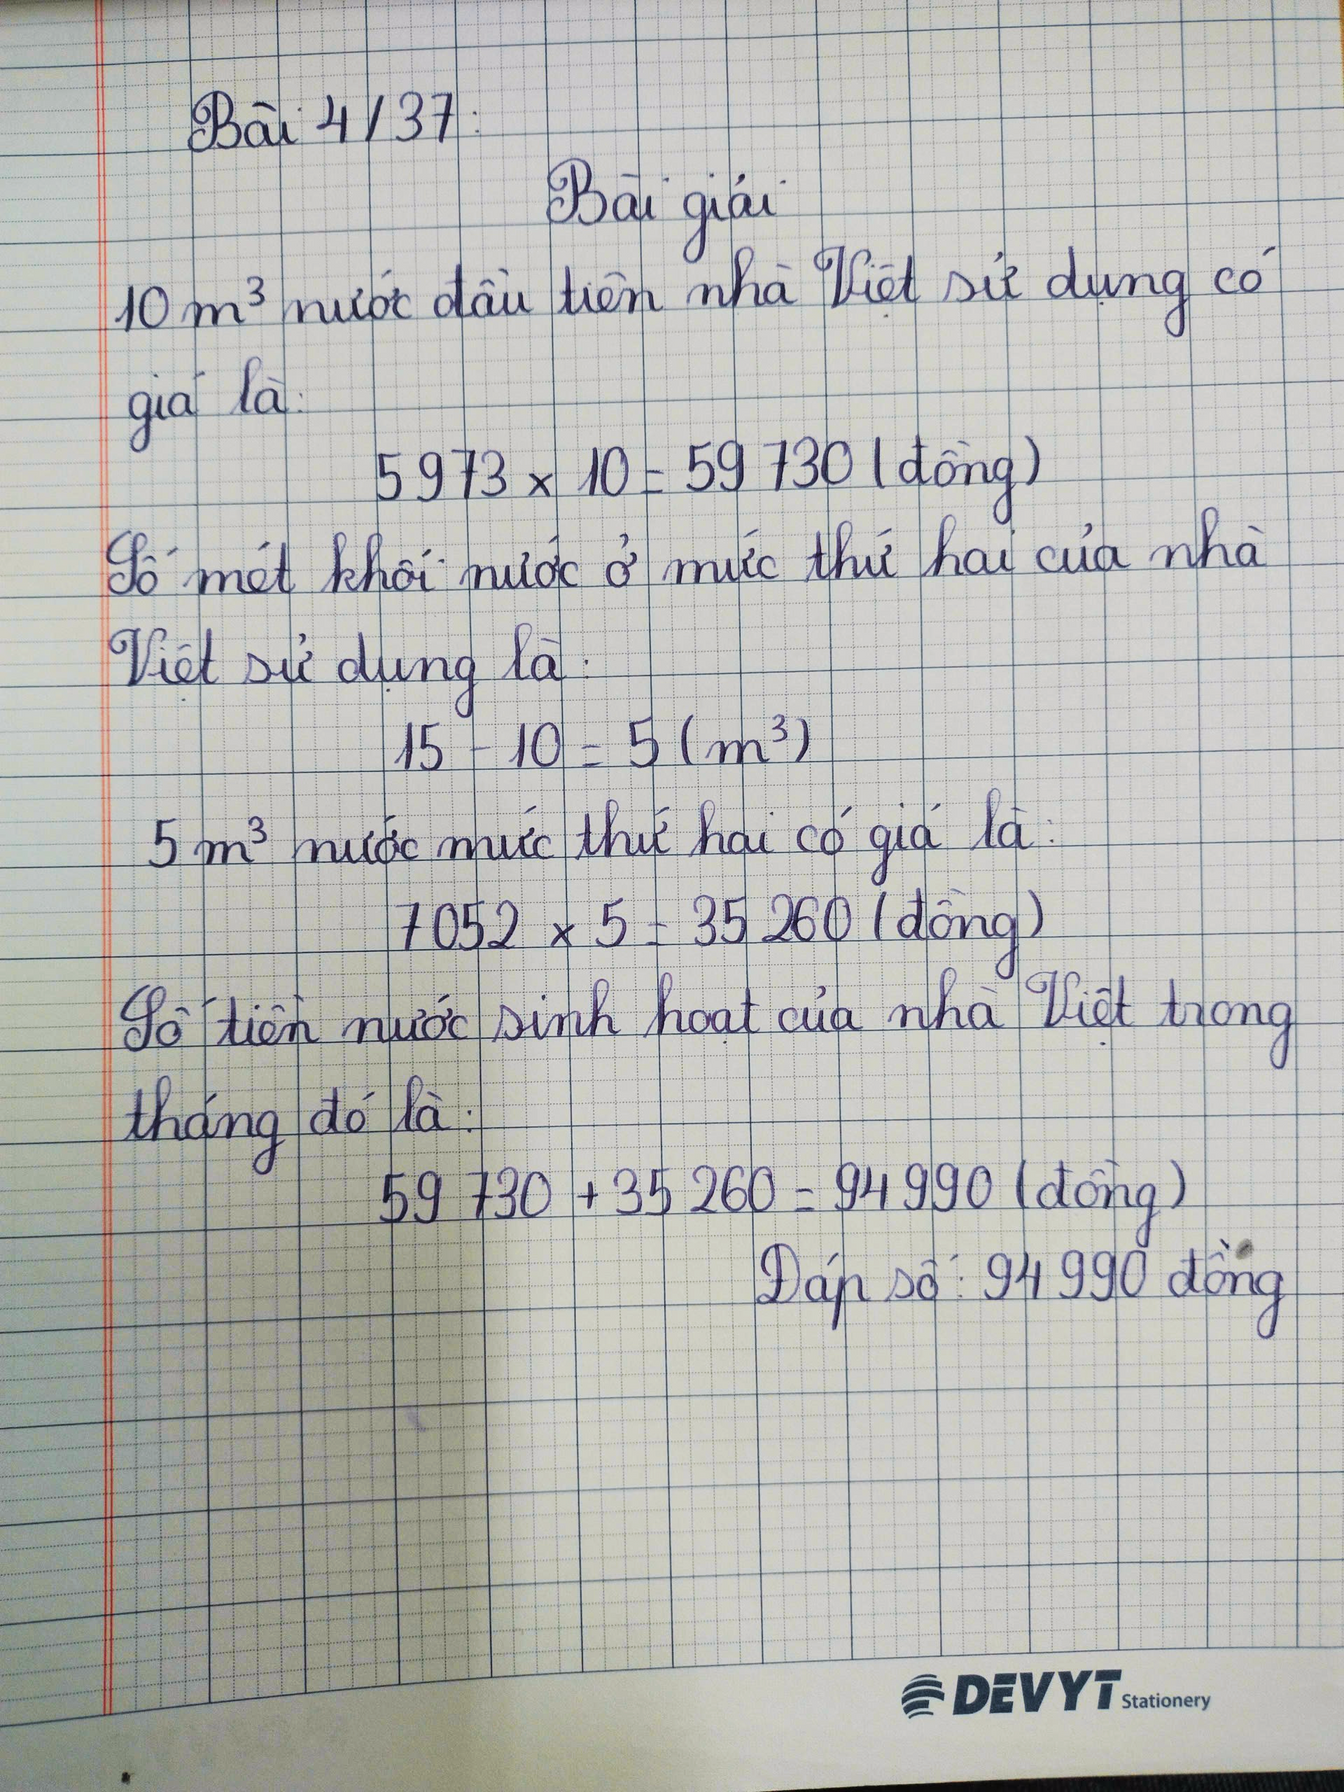 Bài 4/37:
Bài giải
10 m³ nước đầu tiên nhà Việt sử dụng có
giá là:
5973 x 10 = 59 730 (đồng)
Số mét khối nước ở mức thứ hai của nhà
Việt sử dụng là:
15 - 10 = 5 (m³)
5 m³ nước mức thứ hai có giá là:
7052 x 5 = 35 260 (đồng)
Số tiền nước sinh hoạt của nhà Việt trong
tháng đó là:
59 730 + 35 260 = 94 990 (đồng)
Đáp số: 94 990 đồng
DEVYT Stationery